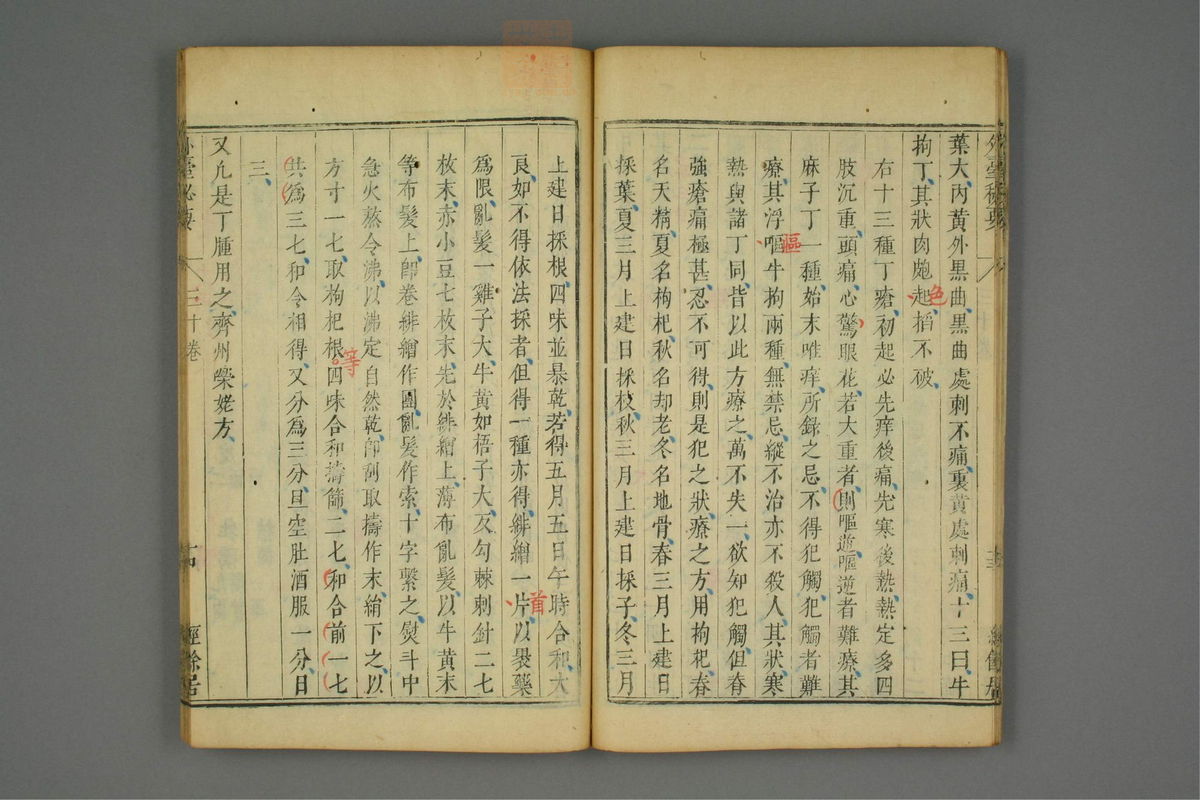 外臺秘要
葉大內黃外黑曲黑曲處刺不痛裏黃處刺痛十三曰牛
拘丁其狀肉皰起搯不破
色
右十三種丁瘡初起必先痒後痛先寒後熱熱定多四
肢沉重頭痛心驚眼花若大重者則嘔逆嘔逆者難療其
麻子丁一種始末唯痒所錄之忌不得犯觸犯觸者難
療其浮嘔牛拘兩種無禁忌縱不治亦不殺人其狀寒
漚
熱與諸丁同皆以此方療之萬不失一欲知犯觸但脊
強瘡痛極甚忍不可得則是犯之狀療之方用拘杞春
名天精夏名枸杞秋名却老冬名地骨春三月上建日
採葉夏三月上建日採枝秋三月上建日採子冬三月
上建日採根四味並暴乾若得五月五日午時合和大
良如不得依法採者但得一種亦得緋繒一片以裹藥
首
為限亂髮一雞子大牛黃如梧子大反勾棘刺針二七
枚末亦小豆七枚末先於緋繒上薄布亂髮以牛黃末
等布髮上卽卷緋繒作團亂髮作索十字繫之熨斗中
急火熬令沸以沸定自然乾卽刮取擣作末絹下之以
方寸一七取枸杞根四味合和擣篩二七和合前一七
等
共為三七和令相得又分為三分旦空肚酒服一分日
三
又凡是丁腫用之齊州榮姥方
外臺秘要
三十卷
十四
經餘居